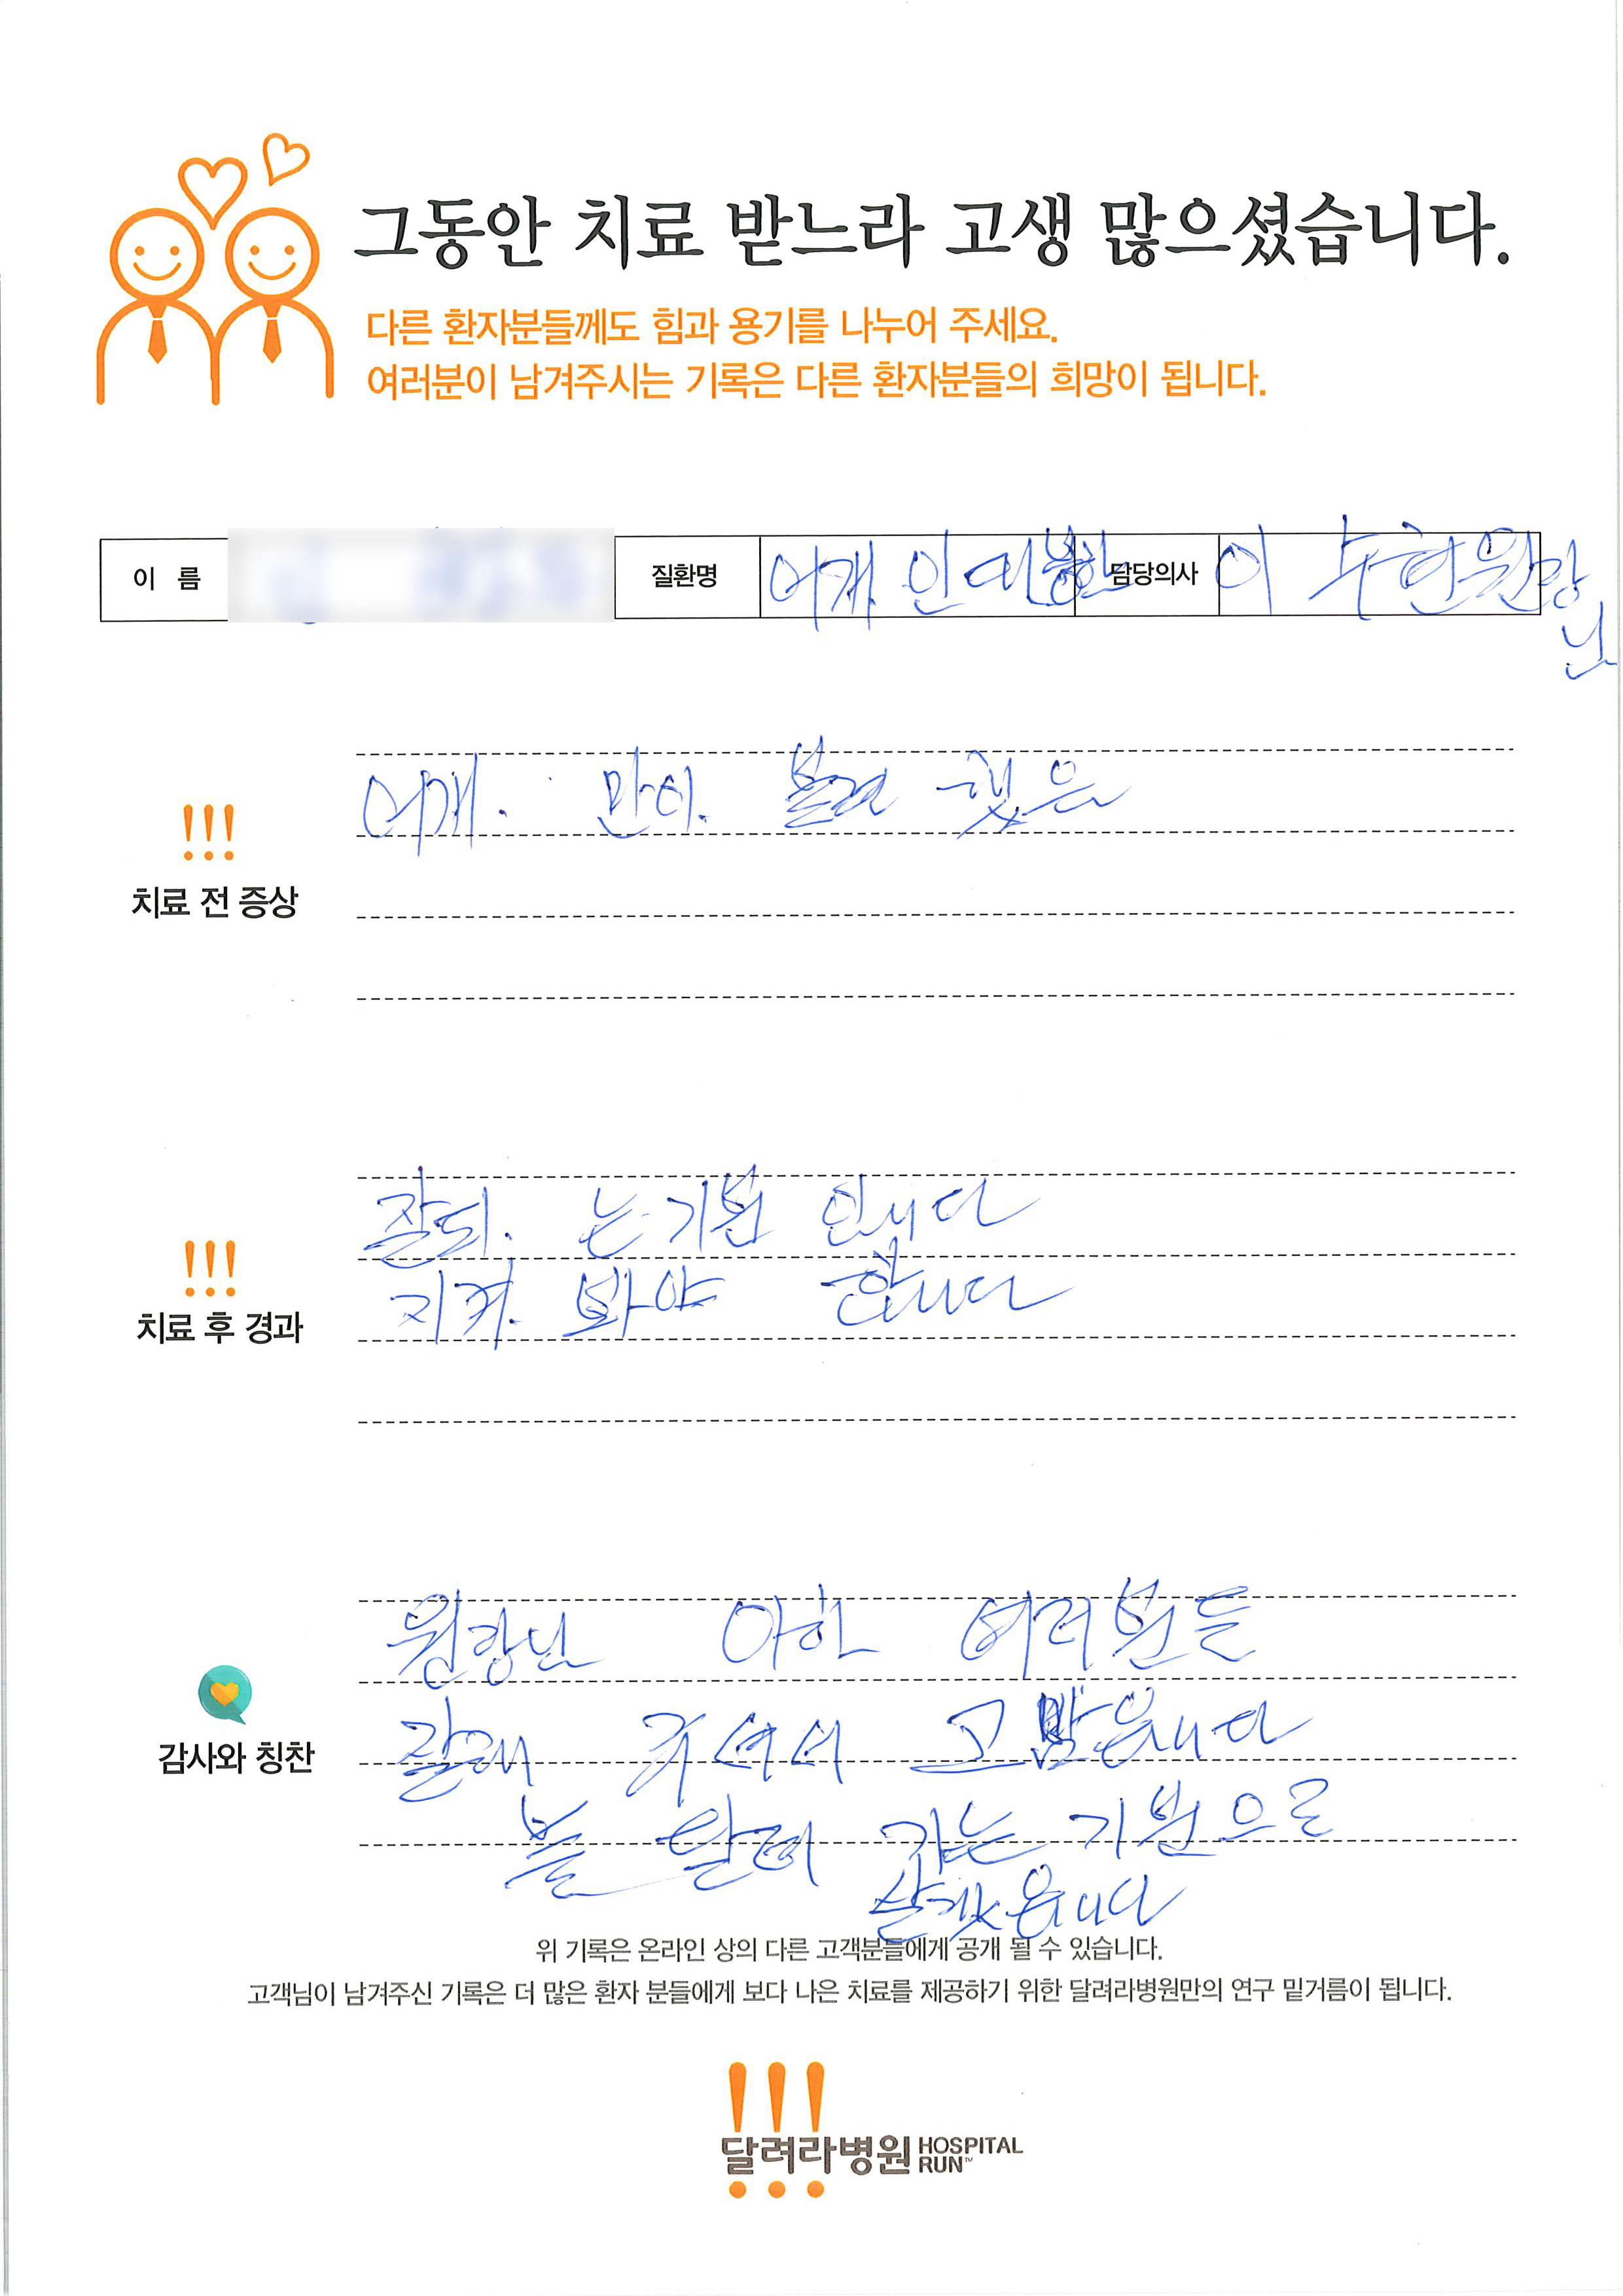 그동안 치료 받느라 고생 많으셨습니다.
다른 환자분들께도 힘과 용기를 나누어 주세요.
여러분이 남겨주시는 기록은 다른 환자분들의 희망이 됩니다.
이 름 질환명 어깨 인대 담당의사 이 수현원장님
어깨. 만이. 불려 했음
!!!
치료 전 증상
잘되. 는기분 인니다
지켜. 봐야 합니다
!!!
치료 후 경과
원장님 아하 여러분들
잘해 주셔서 고맙읍니다
감사와 칭찬
훨 날려 가는 기분으로
살겠읍니다
위 기록은 온라인 상의 다른 고객분들에게 공개 될 수 있습니다.
고객님이 남겨주신 기록은 더 많은 환자 분들에게 보다 나은 치료를 제공하기 위한 달려라병원만의 연구 밑거름이 됩니다.
달려라병원 HOSPITAL RUN™